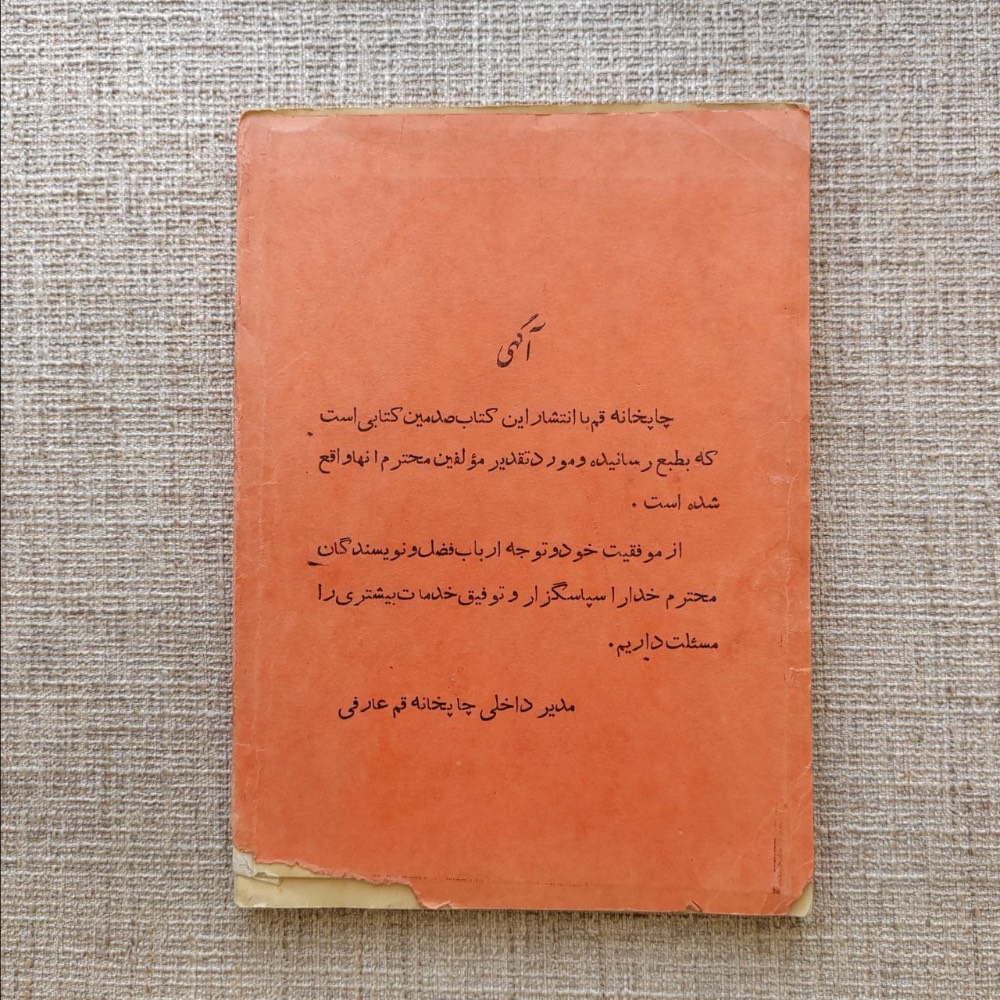 آگهی
چاپخانه قم با انتشار این کتاب صدمین کتابی است
که بطبع رسانیده و مورد تقدیر مؤلفین محترم انها واقع
شده است .
از موفقیت خود و توجه ارباب فضل و نویسندگان
محترم خدارا سپاسگزار و توفیق خدمات بیشتری را
مسئلت داریم.
مدیر داخلی چاپخانه قم عارفی